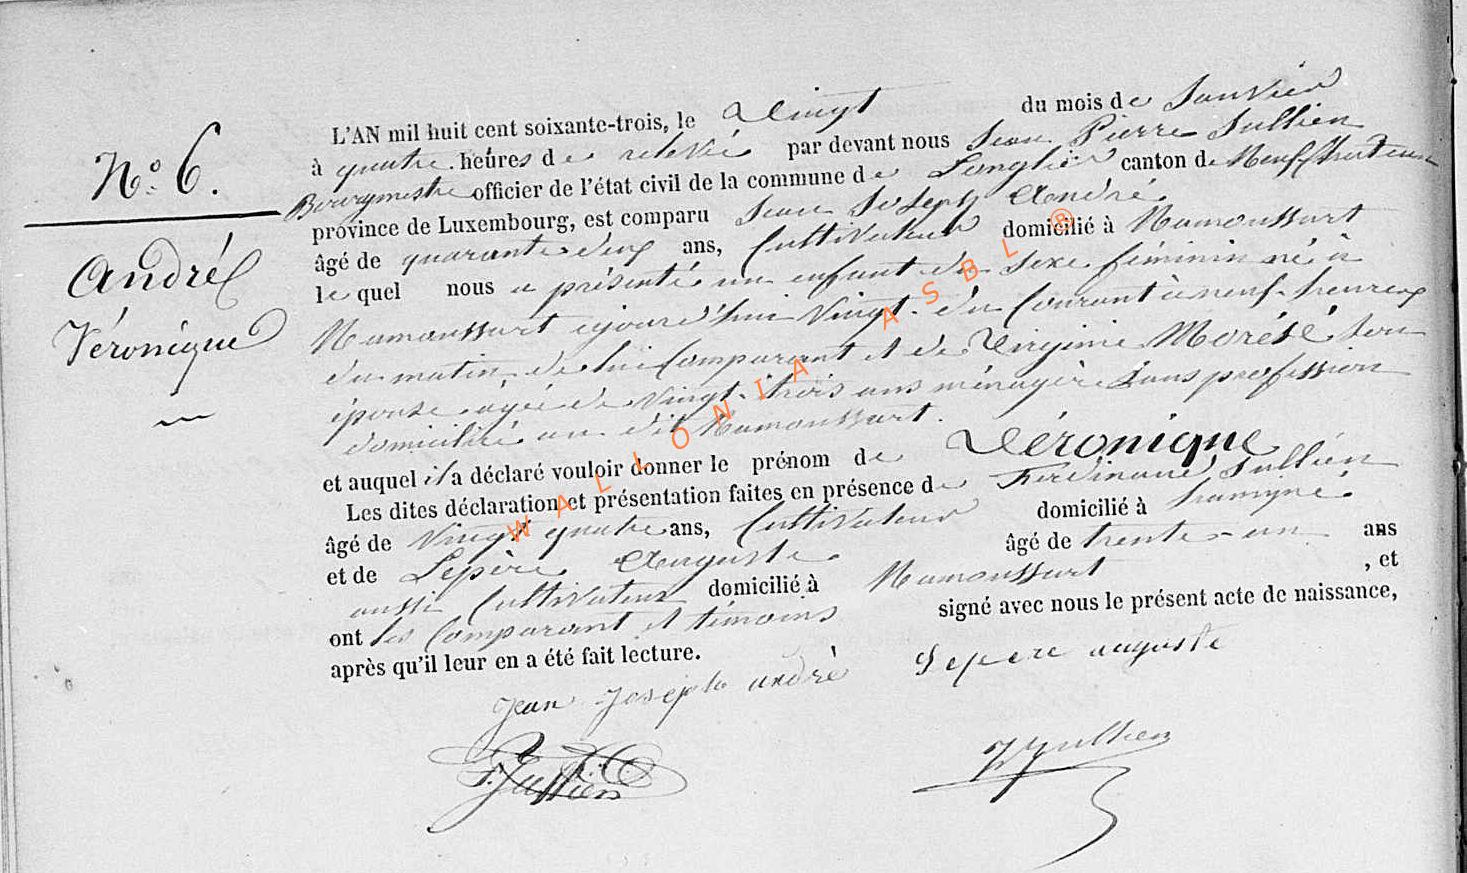 N.º 6.
André
Véronique
L'AN mil huit cent soixante-trois, le Vingt du mois de Janvier
à quatre heures de relevée par devant nous Jean Pierre Jullien
Bourgmestre officier de l'état civil de la commune de Longlier canton de Neufchateau
province de Luxembourg, est comparu Jean Joseph André
âgé de quarante deux ans, Cultivateur domicilié à Namoussart
lequel nous a présenté un enfant du sexe féminin né à
Namoussart aujourd'hui Vingt du Courant à neuf heures
du matin, de lui Comparant et de Virginie Morésé son
épouse agée de Vingt-trois ans ménagère Sans profession
domiciliée au dit Namoussart.
et auquel il a déclaré vouloir donner le prénom de Véronique
Les dites déclaration et présentation faites en présence de Ferdinand Jullien
âgé de Vingt quatre ans, Cultivateur domicilié à
et de Lepère Auguste âgé de trente-un ans
aussi Cultivateur domicilié à Namoussart , et
ont les Comparant et témoins signé avec nous le présent acte de naissance,
après qu'il leur en a été fait lecture.
Jean Joseph andrè Lepere auguste
F. Jullien Jullien
WALLONIA ASBL ®